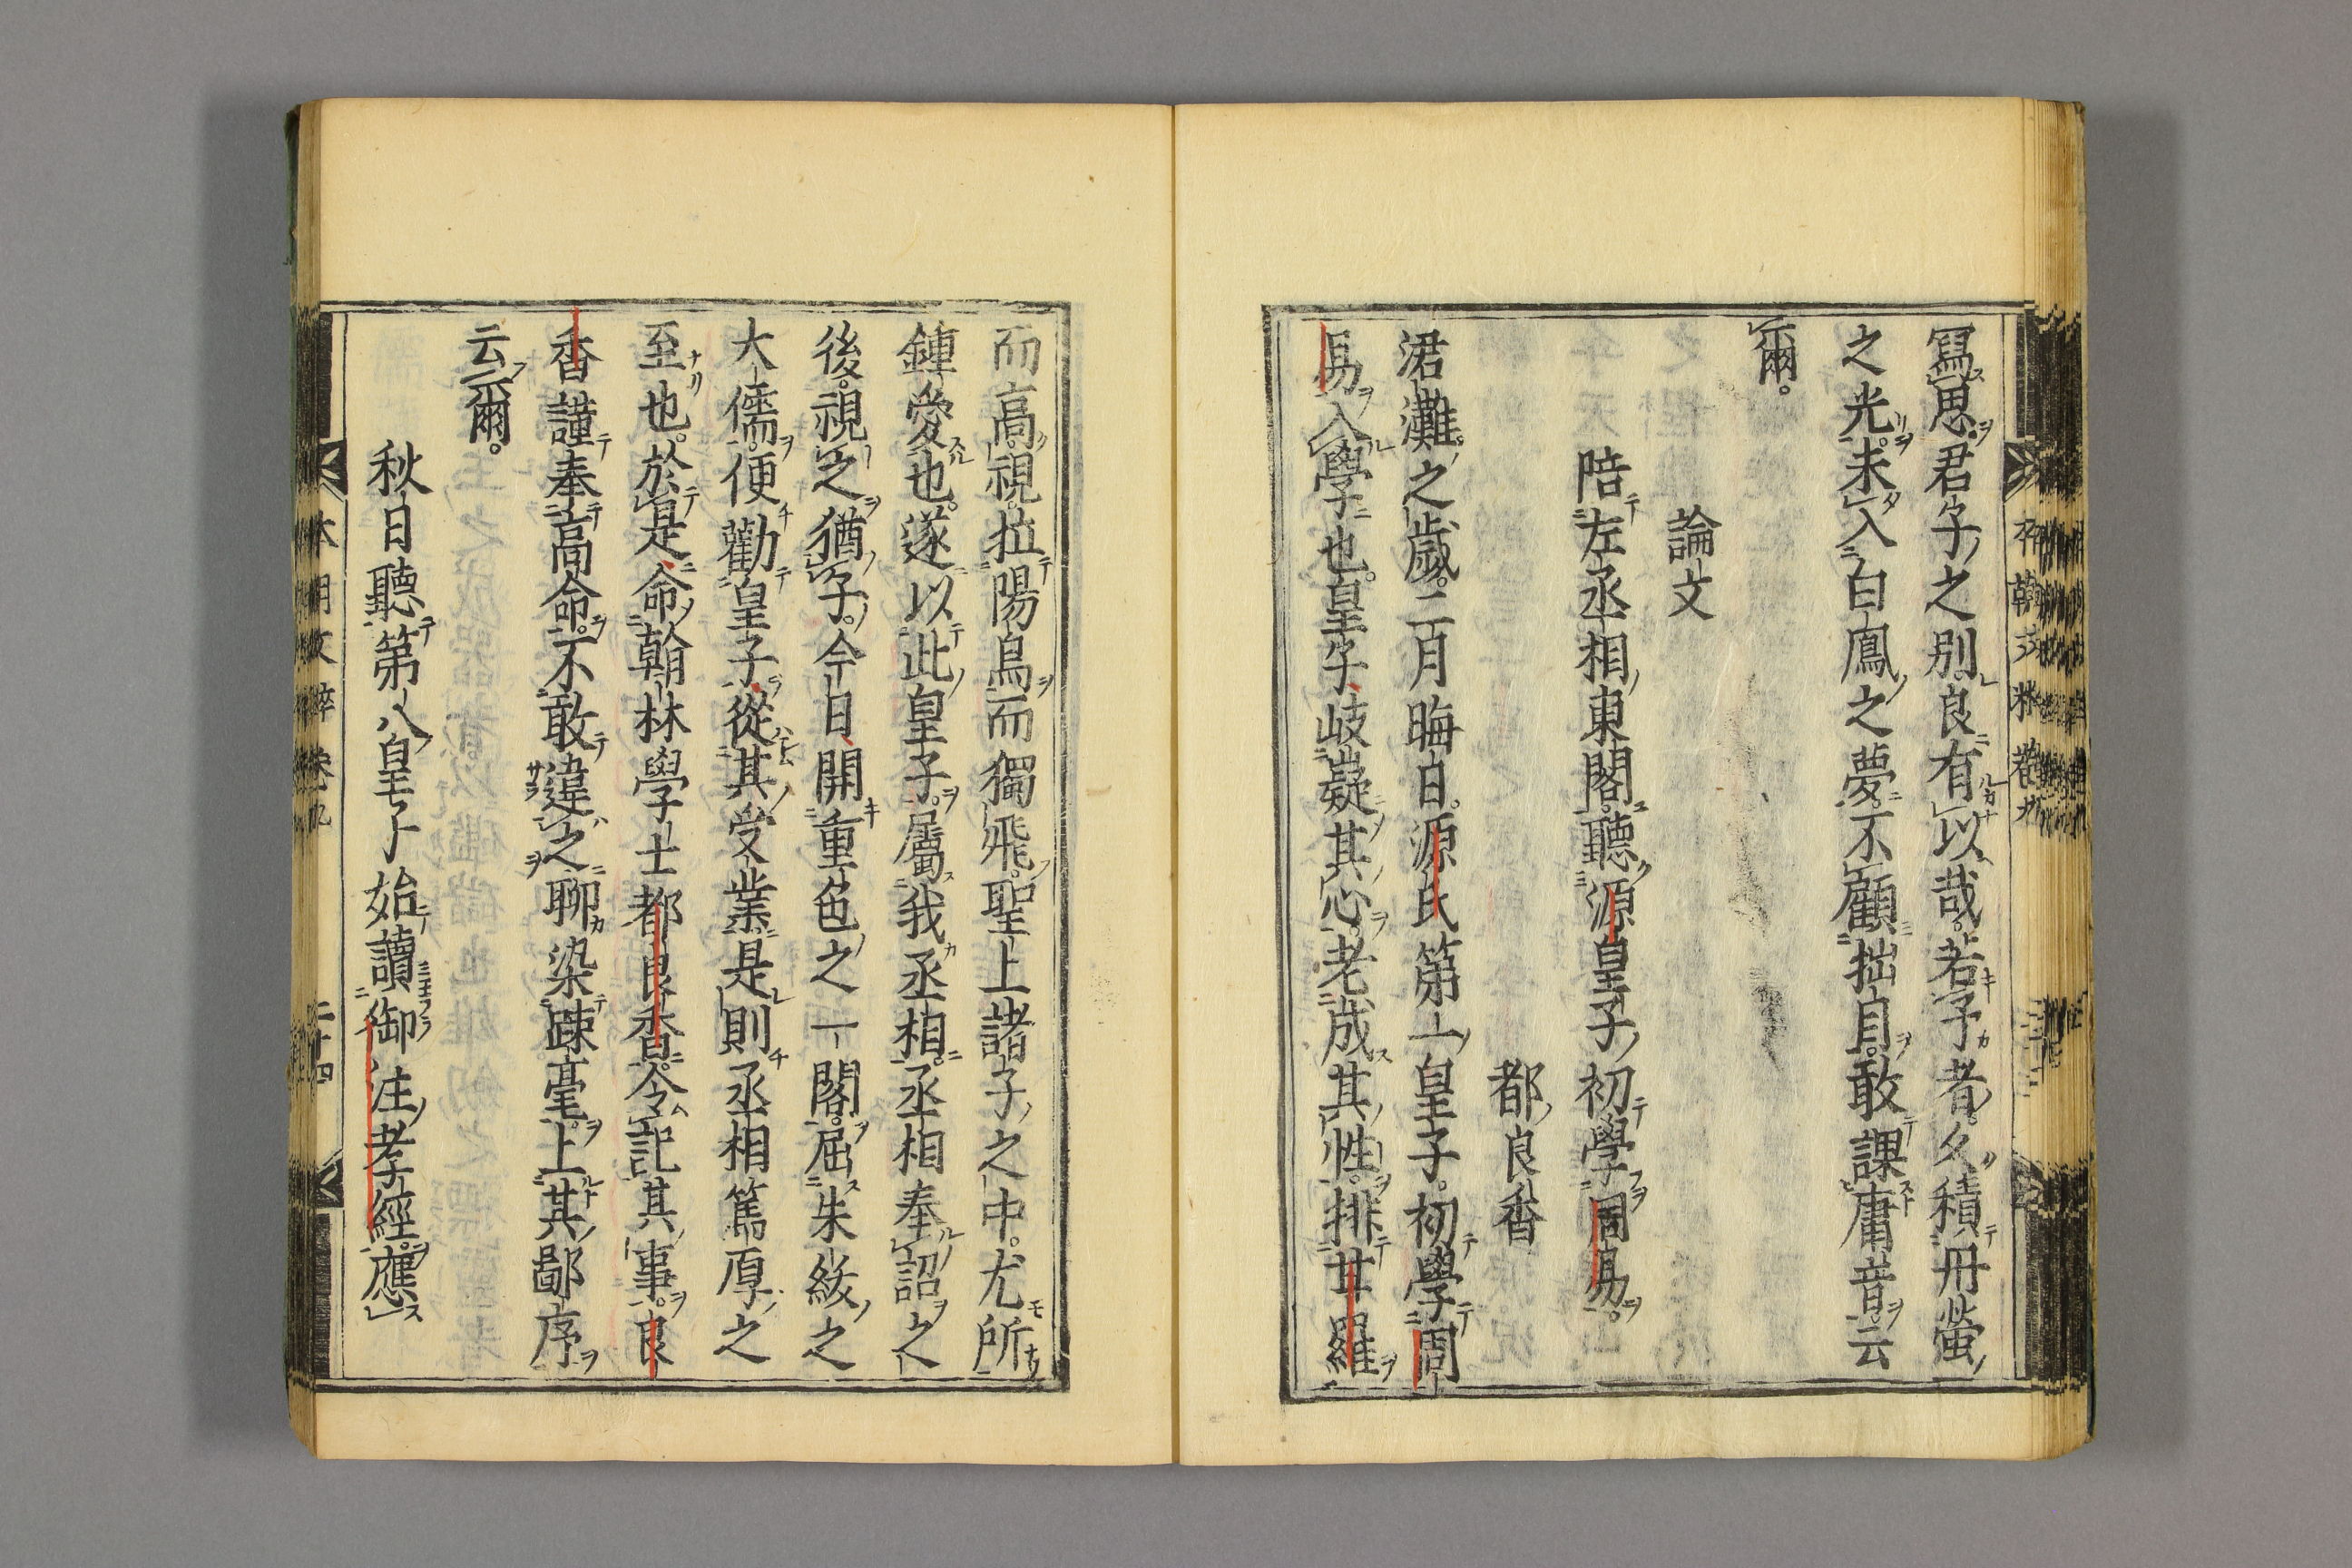 寫思君子之別良有以哉若予者久積冊螢
之光未入白鳳之夢不顧拙目敢課庸音云
爾
論文
陪左丞相東閣聽源皇子初學周易
都良香
涒灘之歲二月晦日源氏第一皇子初學周
易入學也皇子岐嶷其心老成其性排甘羅
而高視拉陽烏而獨飛聖上諸子之中尤所
鍾愛也遂以此皇子屬我丞相丞相奉詔之
後視之猶子今日開重色之一閣屈朱紱之
大儒便勸皇子從其受業是則丞相篤厚之
至也於是命翰林學士都良香令記其事良
香謹奉高命不敢違之聊染疎毫上其鄙序
云爾
秋日聽第八皇子始讀御注孝經應
本朝文粹卷九
二十四